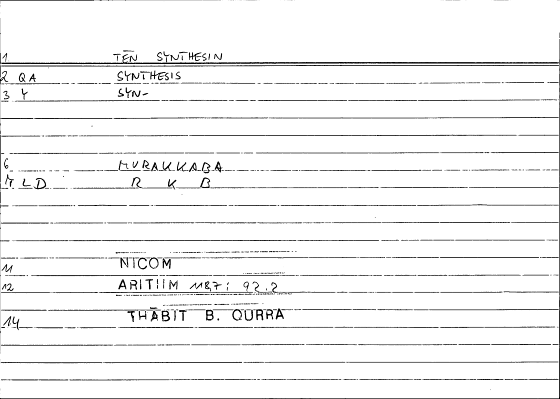 1 TĒN SYNTHESIN
2 QA SYNTHESIS
3 Y SYN-
6 MURAKKABA
7 LD R K B
11 NICOM
12 ARITHM 118,7: 92.2
14 THĀBIT B. QURRA